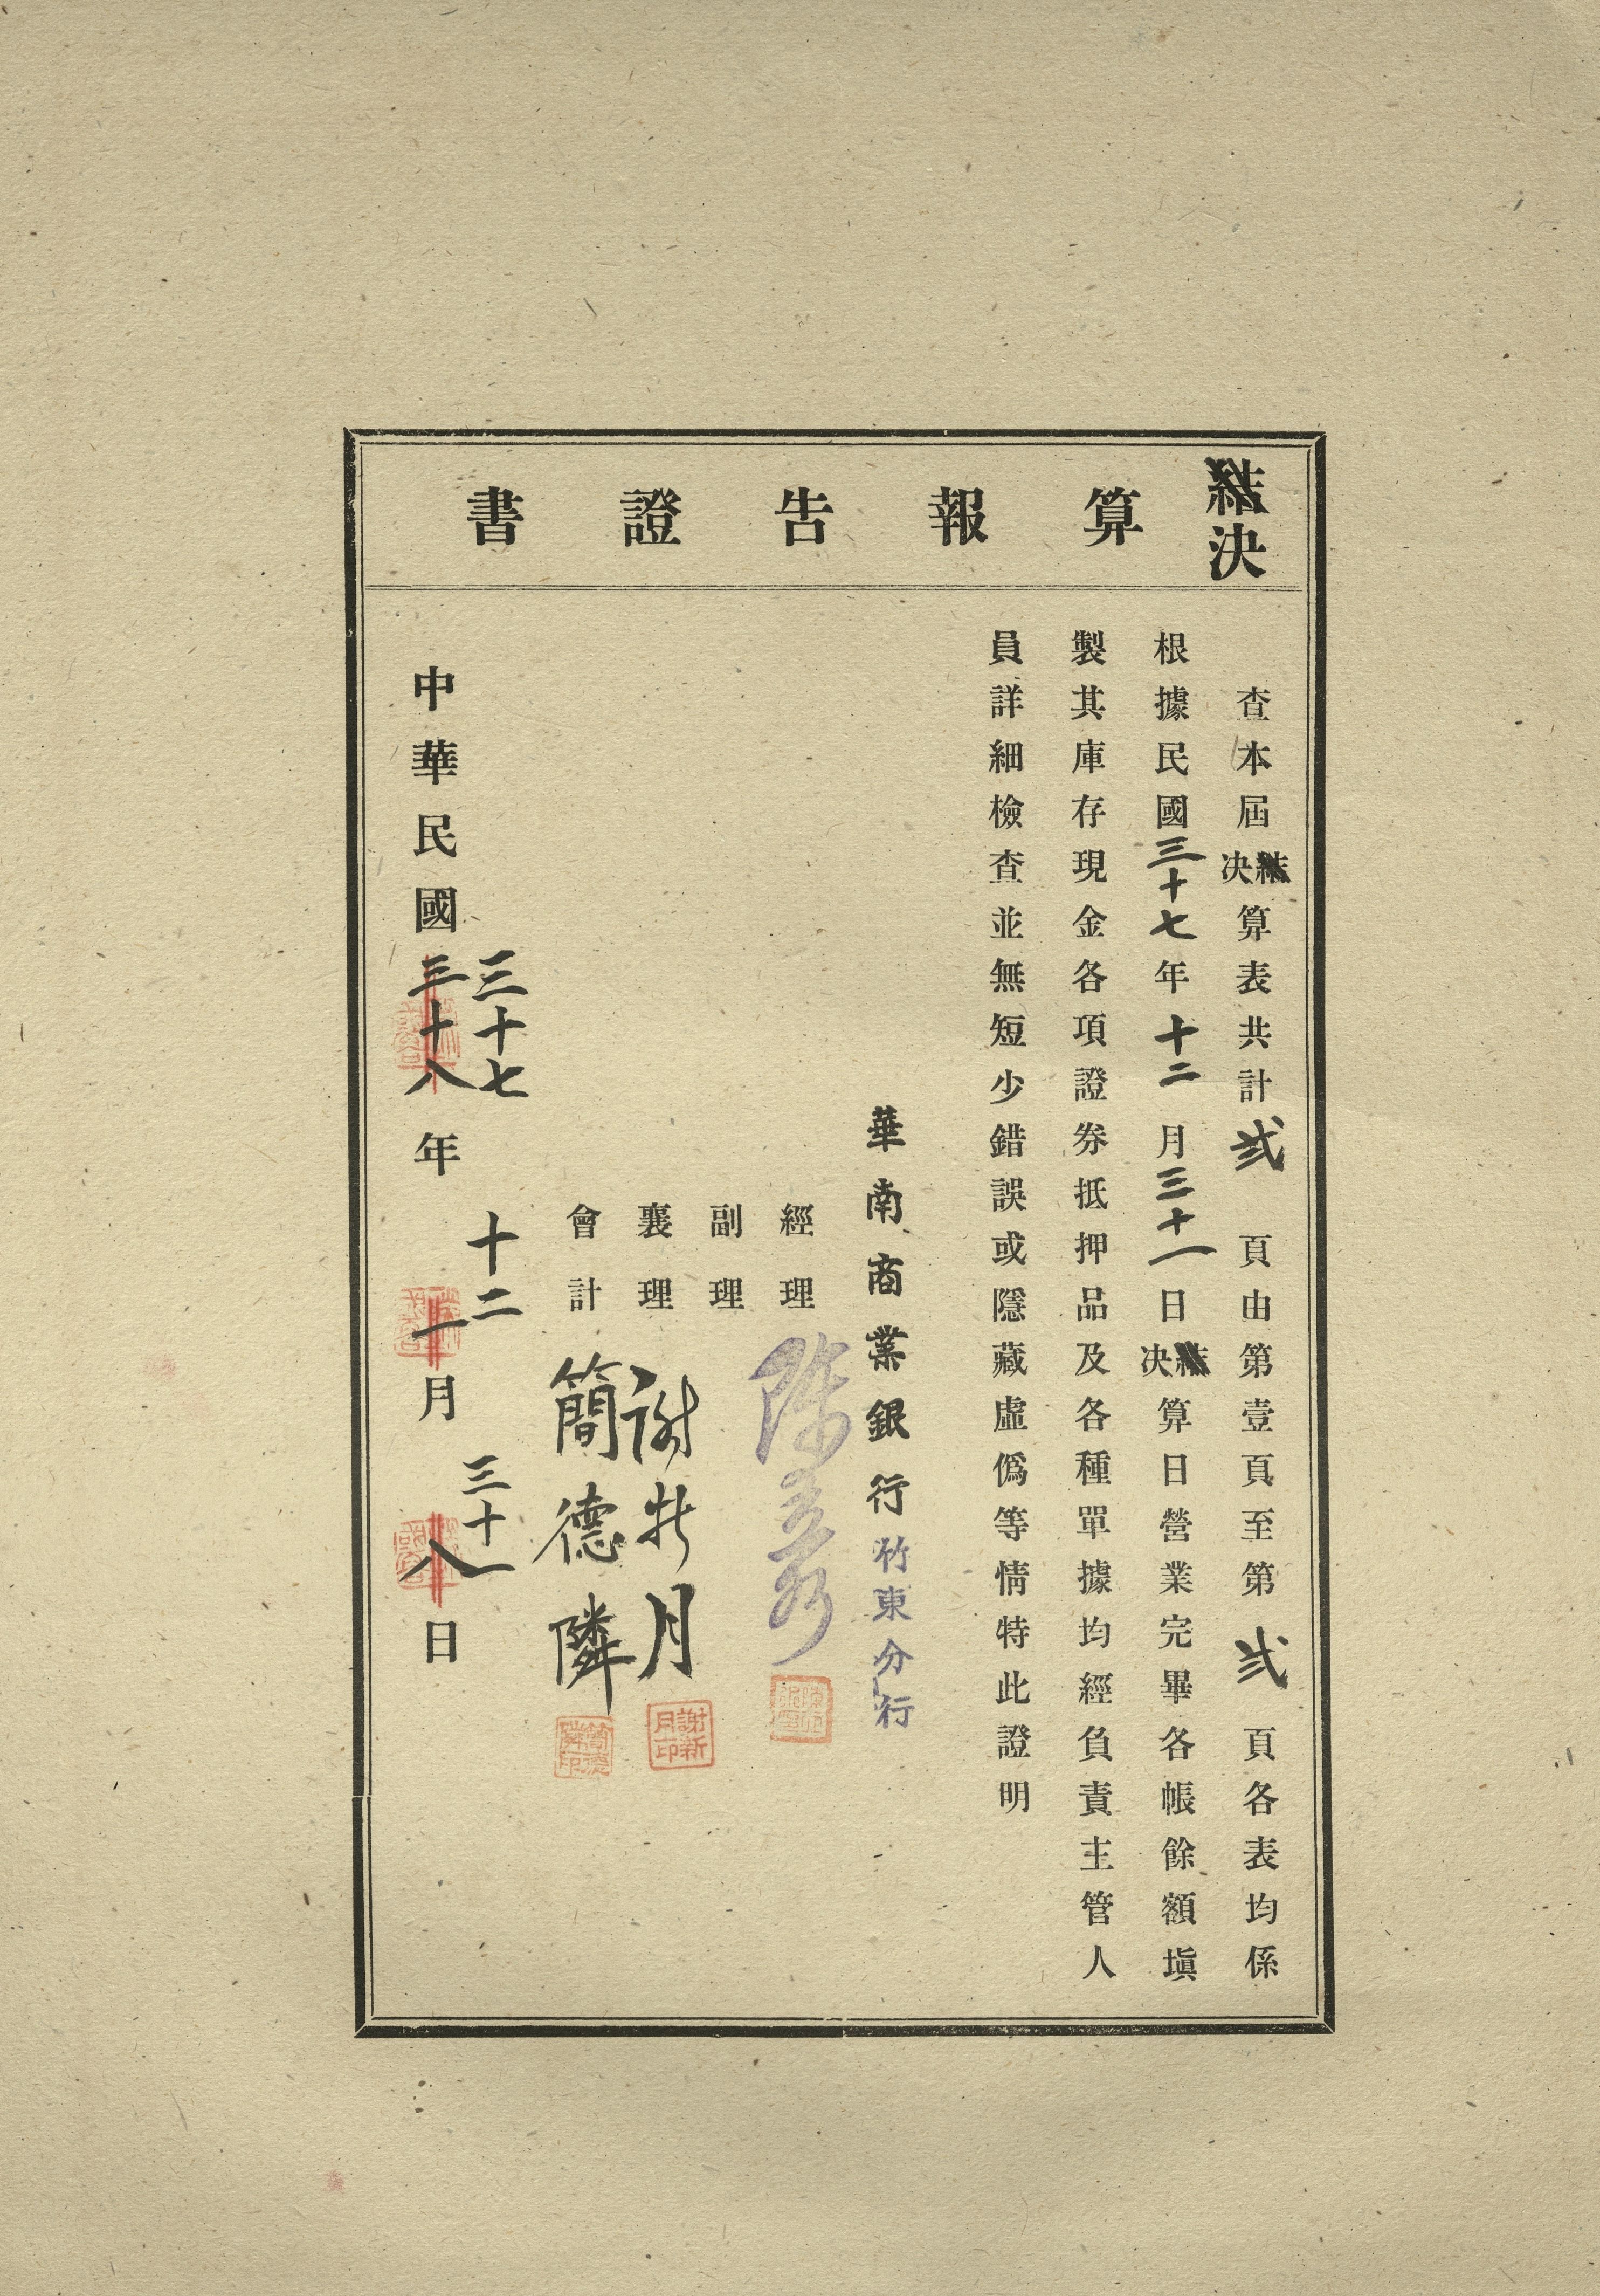 決算報告證書
查本屆決算表共計弍頁由第壹頁至第弍頁各表均係
根據民國三十七年十二月三十一日決算日營業完畢各帳餘額塡
製其庫存現金各項證券抵押品及各種單據均經負責主管人
員詳細檢查並無短少錯誤或隱藏虛僞等情特此證明
華南商業銀行竹東分行
經理 陳
副理
襄理 謝新月
謝新月印
會計 簡德隣
簡德隣印
三十七 十二 三十一
中華民國三十八年一月八日